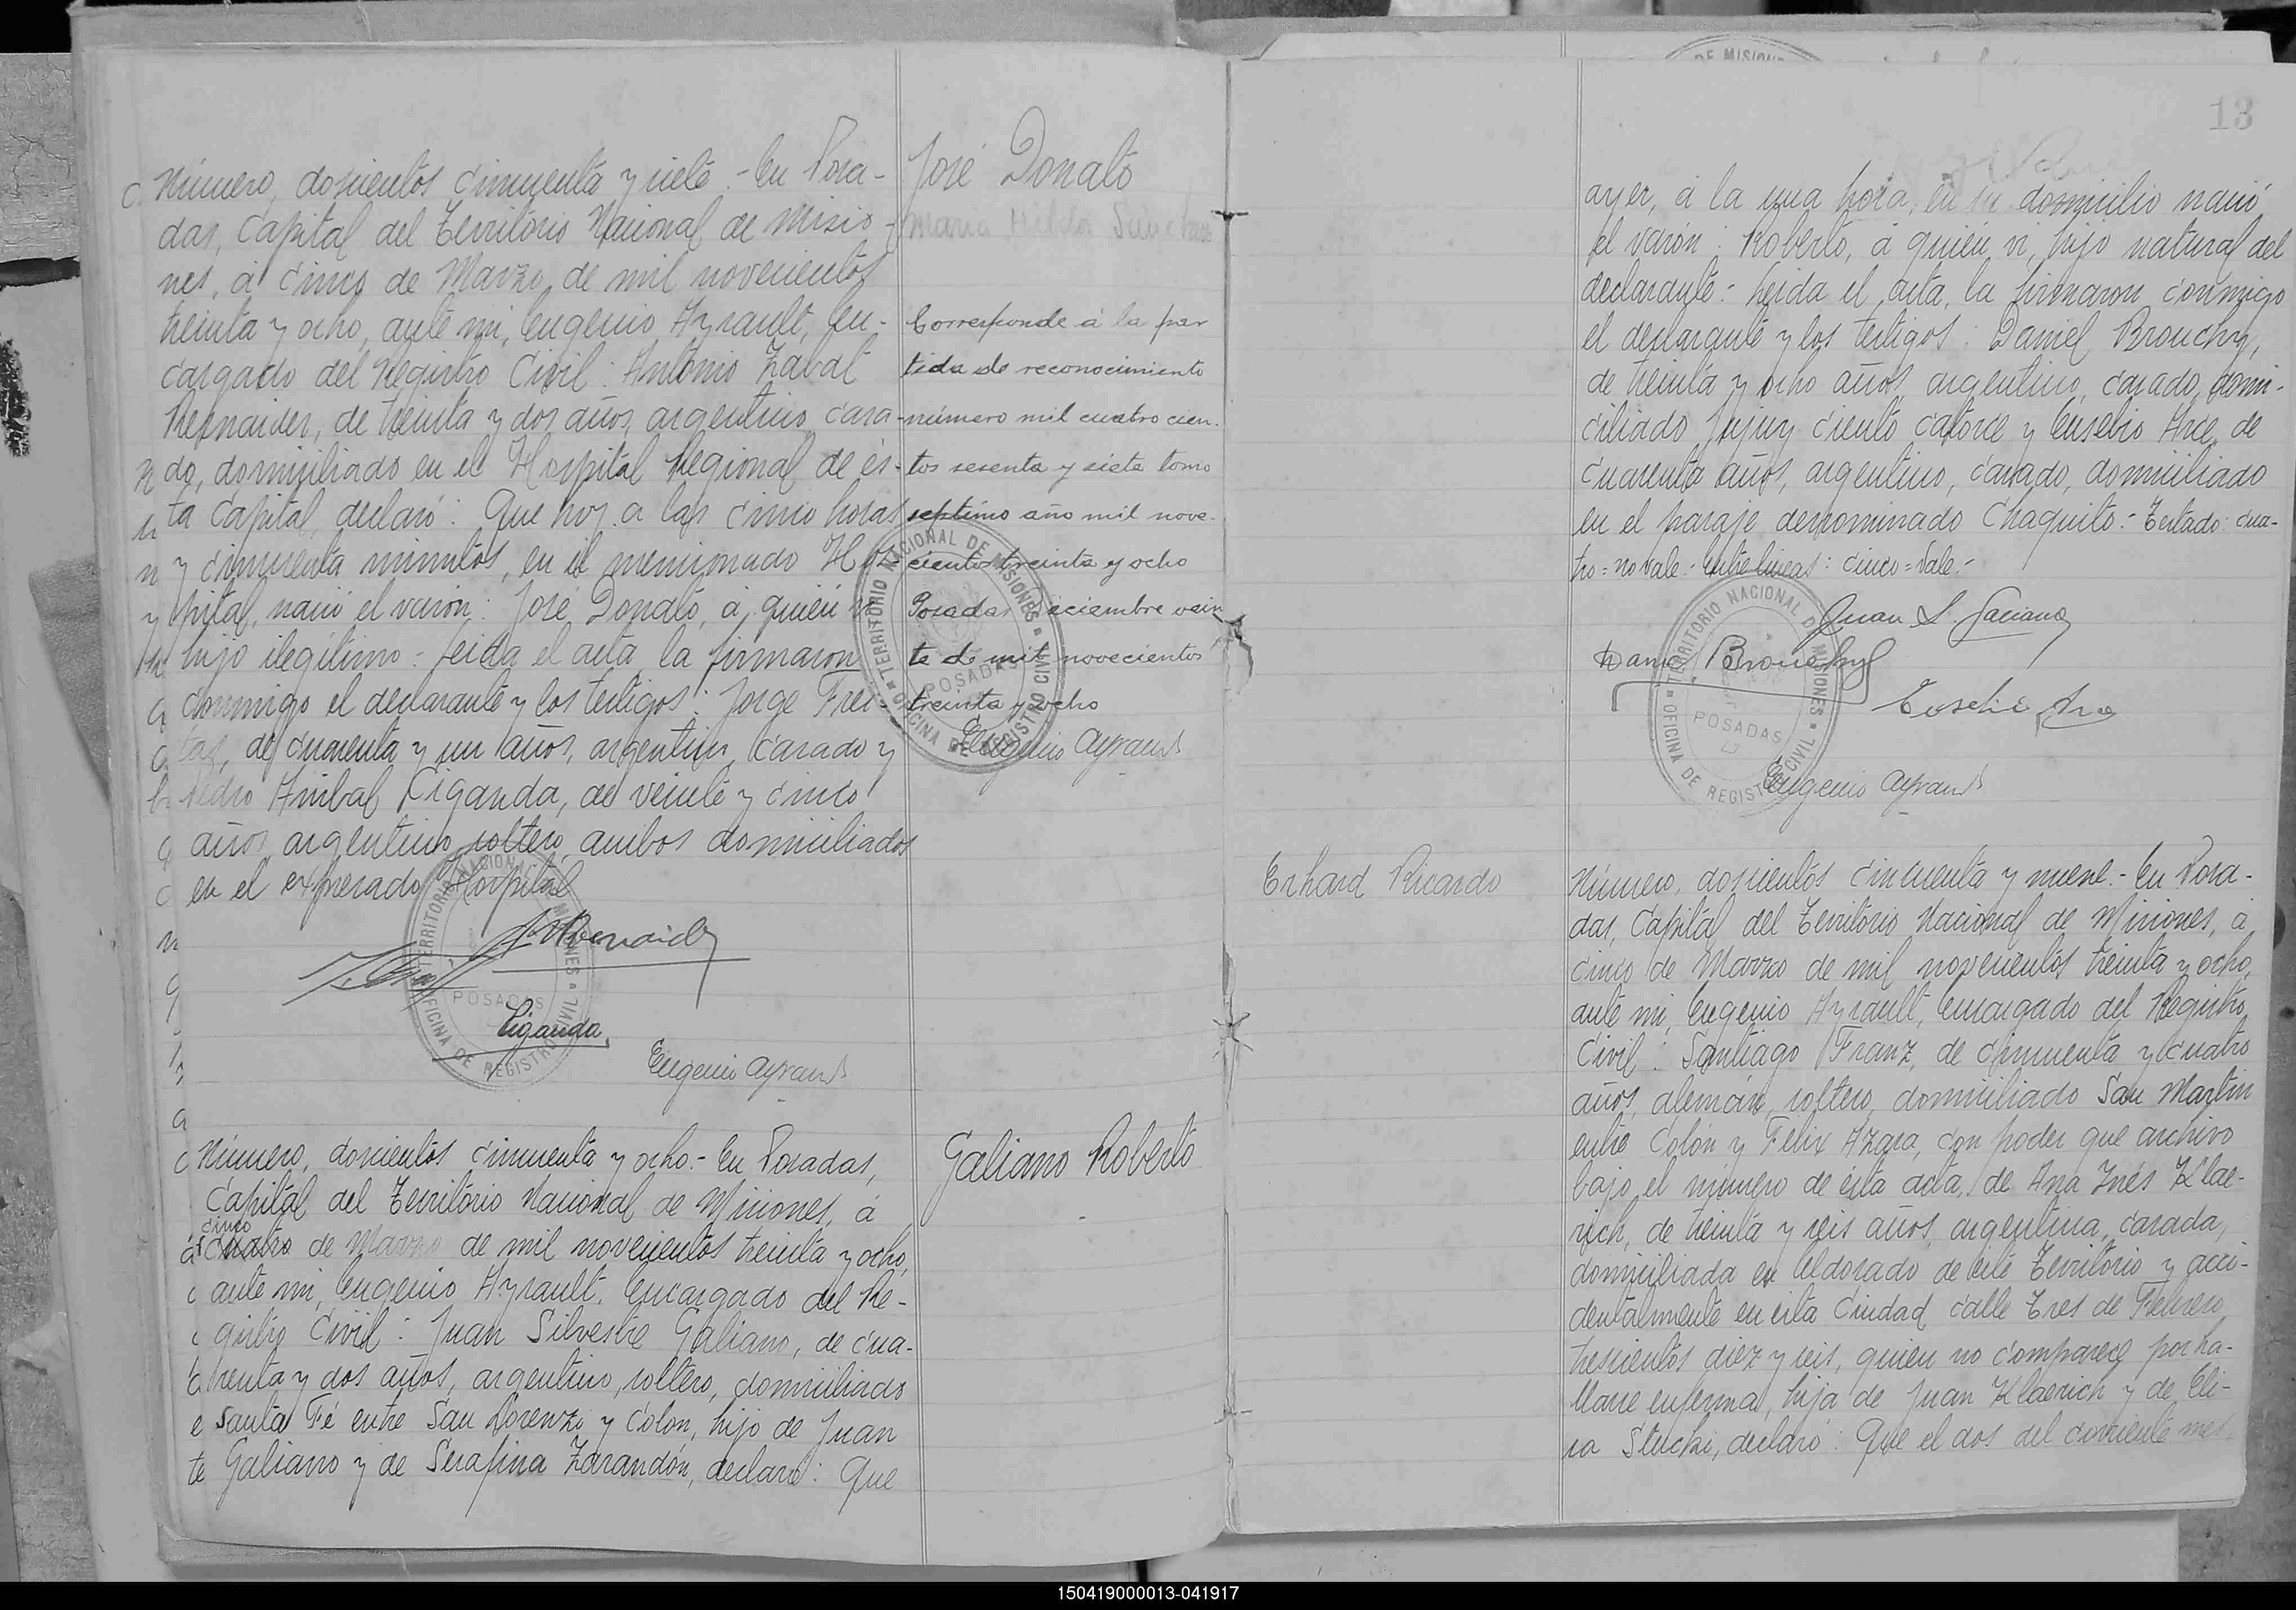 Número, doscientos cincuenta y siete.- En Posa-
das, Capital del Territorio Nacional de Misio-
nes, á cinco de Marzo de mil novecientos
treinta y ocho, ante mi, Eugenio Ayrault, En-
cargado del Registro Civil: Antonio Zabat
Resnaider, de treinta y dos años, argentino, casa-
do, domiciliado en el Hospital Regional de és-
ta Capital, declaró: Que hoy a las cinco horas
y cincuenta minutos, en el mencionado Hos-
pital, nació el varón: José Donato, á quién ví
hijo ilegítimo.- Leida el acta la firmaron
conmigo el declarante y los testigos: Jorge Frei-
tas, de cuarenta y un años, argentino, casado y
Pedro Anibal Liganda, de veinte y cinco
años, argentino, soltero, ambos domiciliados
en el expresado Hospital
Liganda
Eugenio Ayrault
José Donato
Maria Hilda Sánchez
Corresponde á la par
tida de reconocimiento
número mil cuatrocien-
tos sesenta y siete tomo
septimo año mil nove-
cientos treinta y ocho
Posadas Diciembre vein
te de mil novecientos
treinta y ocho
Eugenio Ayrault
TERRITORIO NACIONAL DE MISIONES
OFICINA DE REGISTRO CIVIL
POSADAS
Número, doscientos cincuenta y ocho.- En Posadas,
Capital del Territorio Nacional de Misiones, á
cinco
cuatro de Marzo de mil novecientos treinta y ocho,
ante mi, Eugenio Ayrault, Encargado del Re-
gistro Civil: Juan Silvestre Galiano, de cua-
renta y dos años, argentino, soltero, domiciliado
Santa Fé entre San Lorenzo y Colon, hijo de Juan
Galiano y de Serafina Zarandón, declaró: Que
Galiano Roberto
13
ayer, á la una hora, en su domicilio nació
el varón: Roberto, á quién ví, hijo natural del
declarante.- Leida el acta, la firmaron conmigo
el declarante y los testigos: Daniel Brouchy,
de treinta y ocho años, argentino, casado, domi-
ciliado Jujuy ciento catorce y Eusebio Arce, de
cuarenta años, argentino, casado, domiciliado
en el paraje denominado Chaquito.- Testado: cua-
tro=no vale.- Entre lineas: cinco=Vale.-
Juan S. Galiano
Daniel Brouchy
Eusebio Arce
Eugenio Ayrault
TERRITORIO NACIONAL DE MISIONES
OFICINA DE REGISTRO CIVIL
POSADAS
Erhard Ricardo
Número, doscientos cincuenta y nueve.- En Posa-
das, Capital del Territorio Nacional de Misiones, á
cinco de Marzo de mil novecientos treinta y ocho,
ante mi, Eugenio Ayrault, Encargado del Registro
Civil: Santiago Franz, de cincuenta y cuatro
años, alemán, soltero, domiciliado San Martin
entre Colón y Félix Azara, con poder que archivo
bajo el número de esta acta, de Ana Inés Klae-
rich, de treinta y seis años, argentina, casada,
domiciliada en Eldorado de este Territorio y acci-
dentalmente en esta Ciudad calle Tres de Febrero
trescientos diez y seis, quien no comparece por ha-
llarse enferma, hija de Juan Klaerich y de Eli-
sa Stucki, declaró: Que el dos del corriente mes,
150419000013-041917